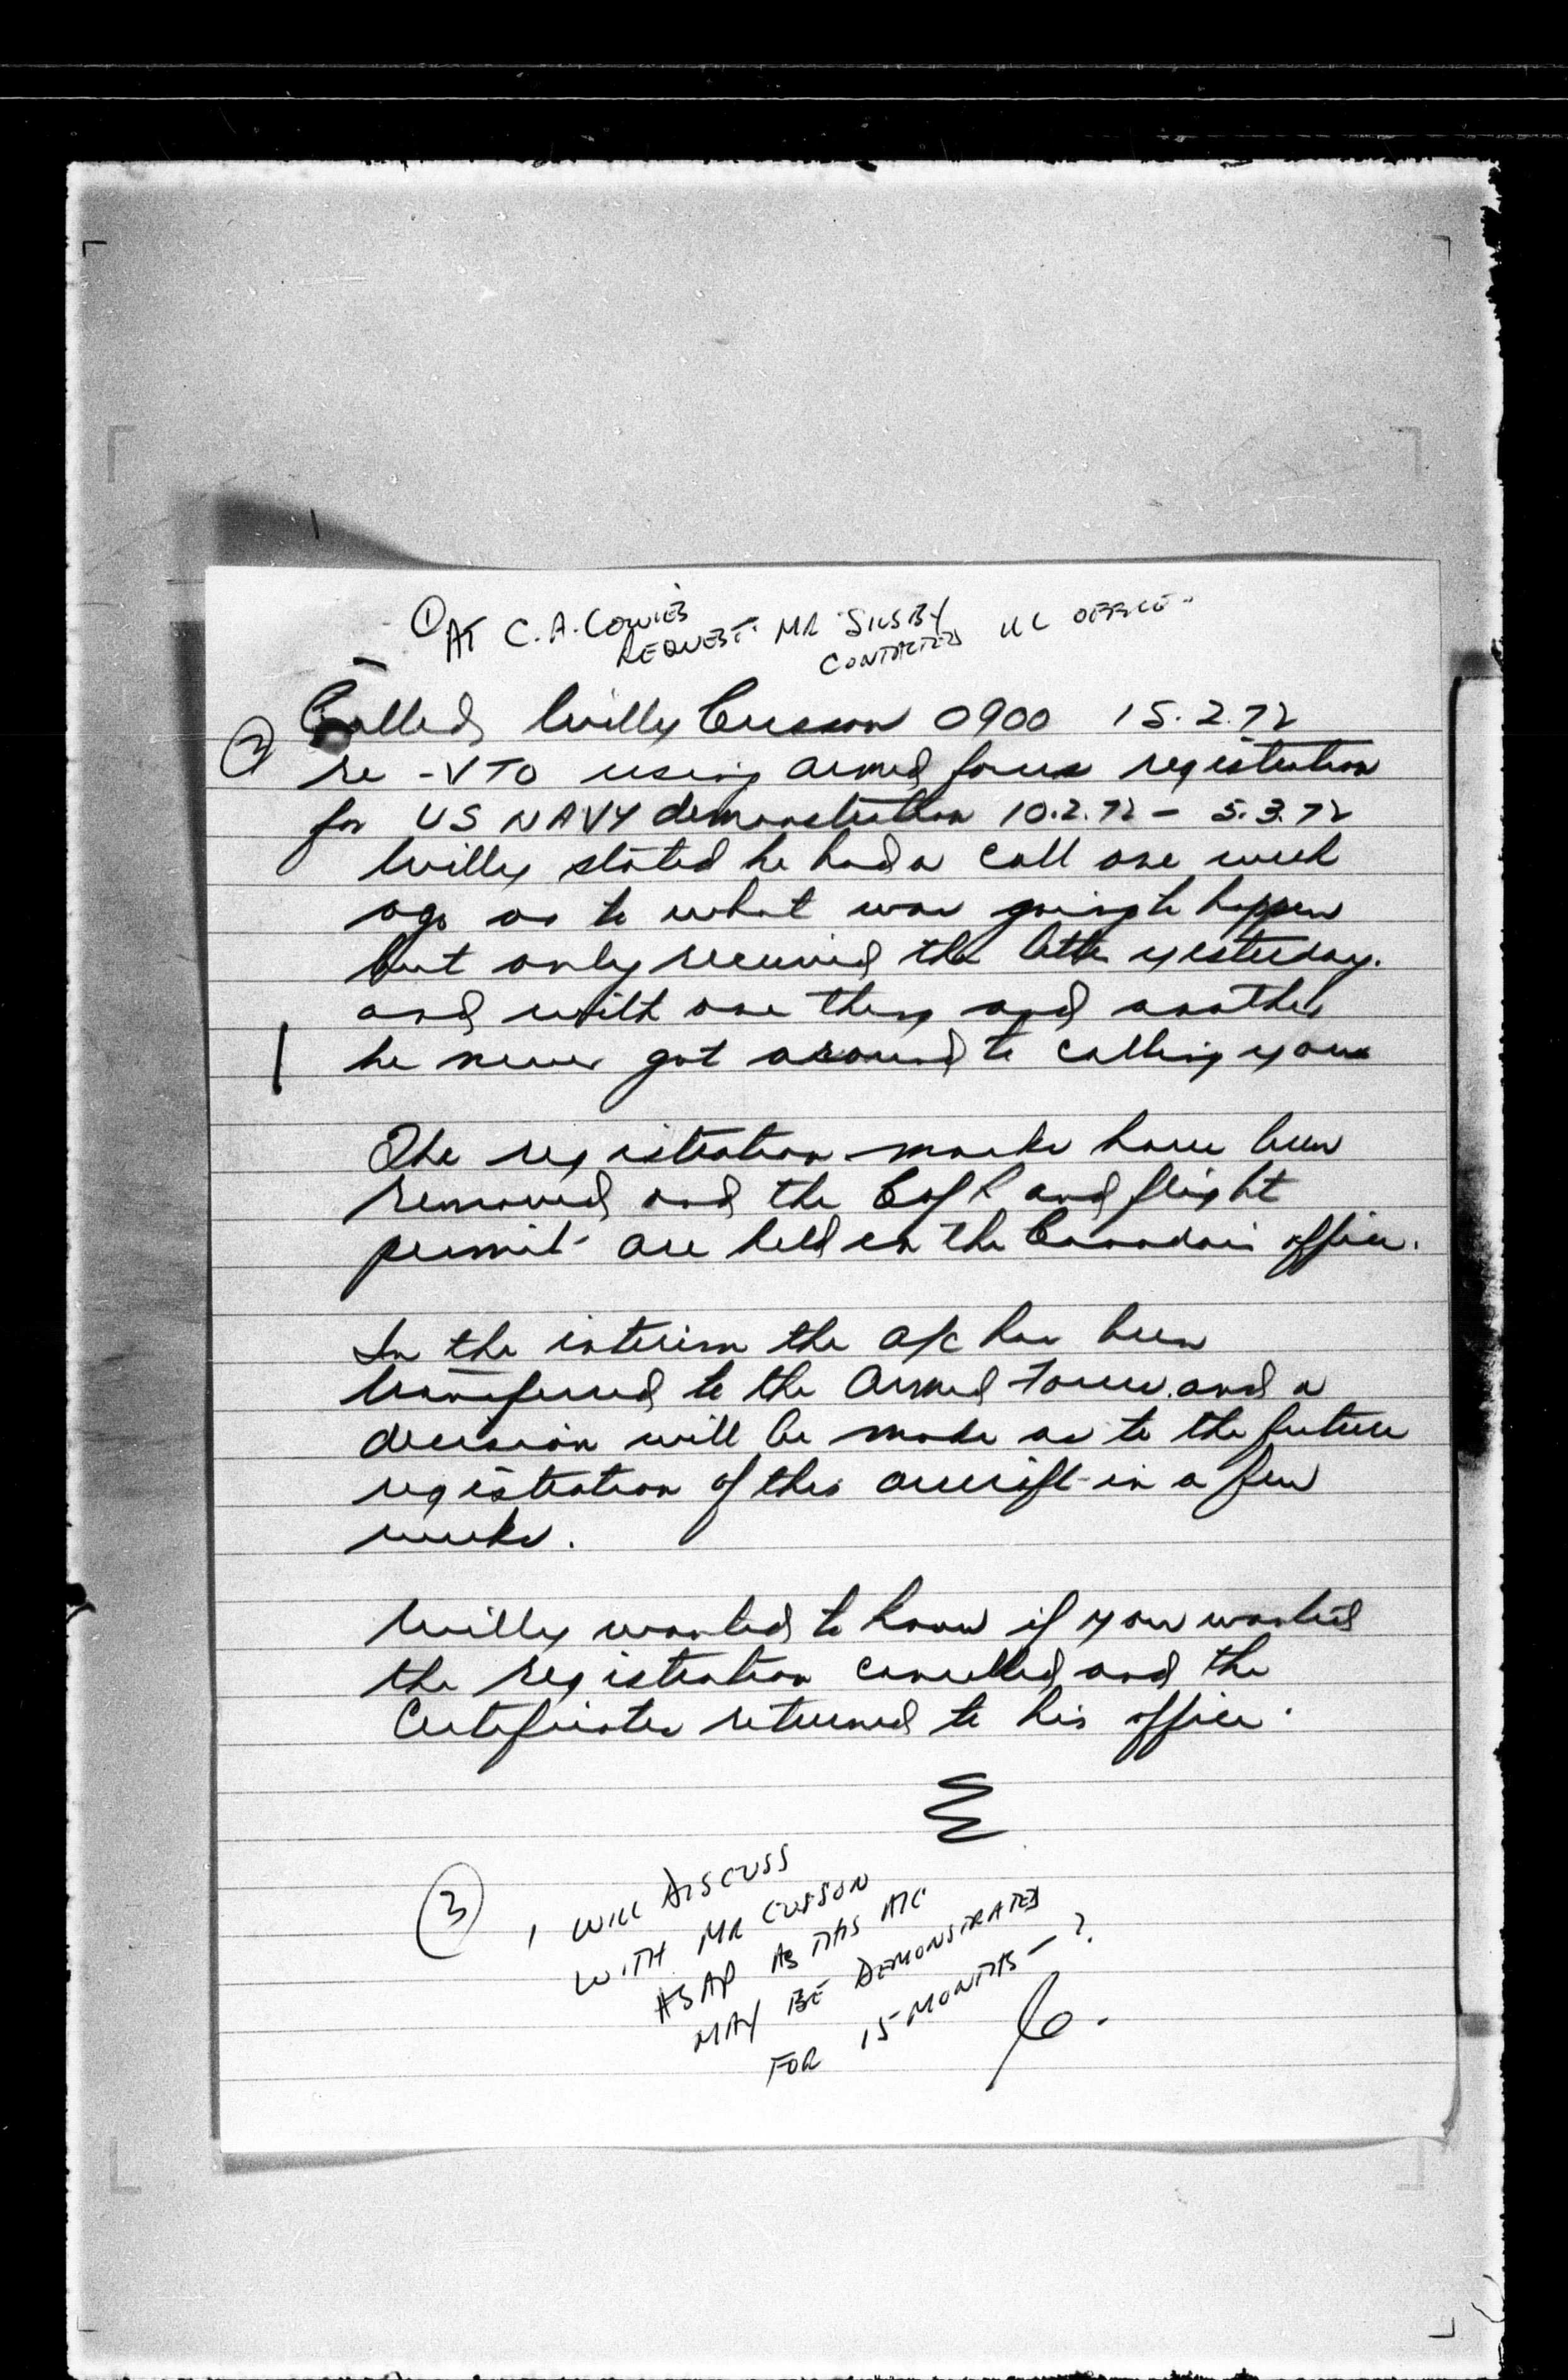 ① AT C.A. COWIE'S
REQUEST MR SILSBY
CONTACTED UL OFFICE
② Called Willy Cusson 0900 15.2.72
re -VTO using armed forces registration
for US NAVY demonstration 10.2.72 - 5.3.72
Willy stated he had a call one week
ago as to what was going to happen
but only received the letter yesterday.
and with one thing and another
he never got around to calling you
The registration marks have been
removed and the C of R and flight
permit are held in the Canadair office.
In the interim the a/c has been
transferred to the Armed Forces and a
decision will be made as to the future
registration of this aircraft in a few
weeks.
Willy wanted to know if you wanted
the registration cancelled and the
Certificates returned to his office.
③ I WILL DISCUSS
WITH MR CUSSON
ASAP AS THIS A/C
MAY BE DEMONSTRATED
FOR 15 MONTHS - ?